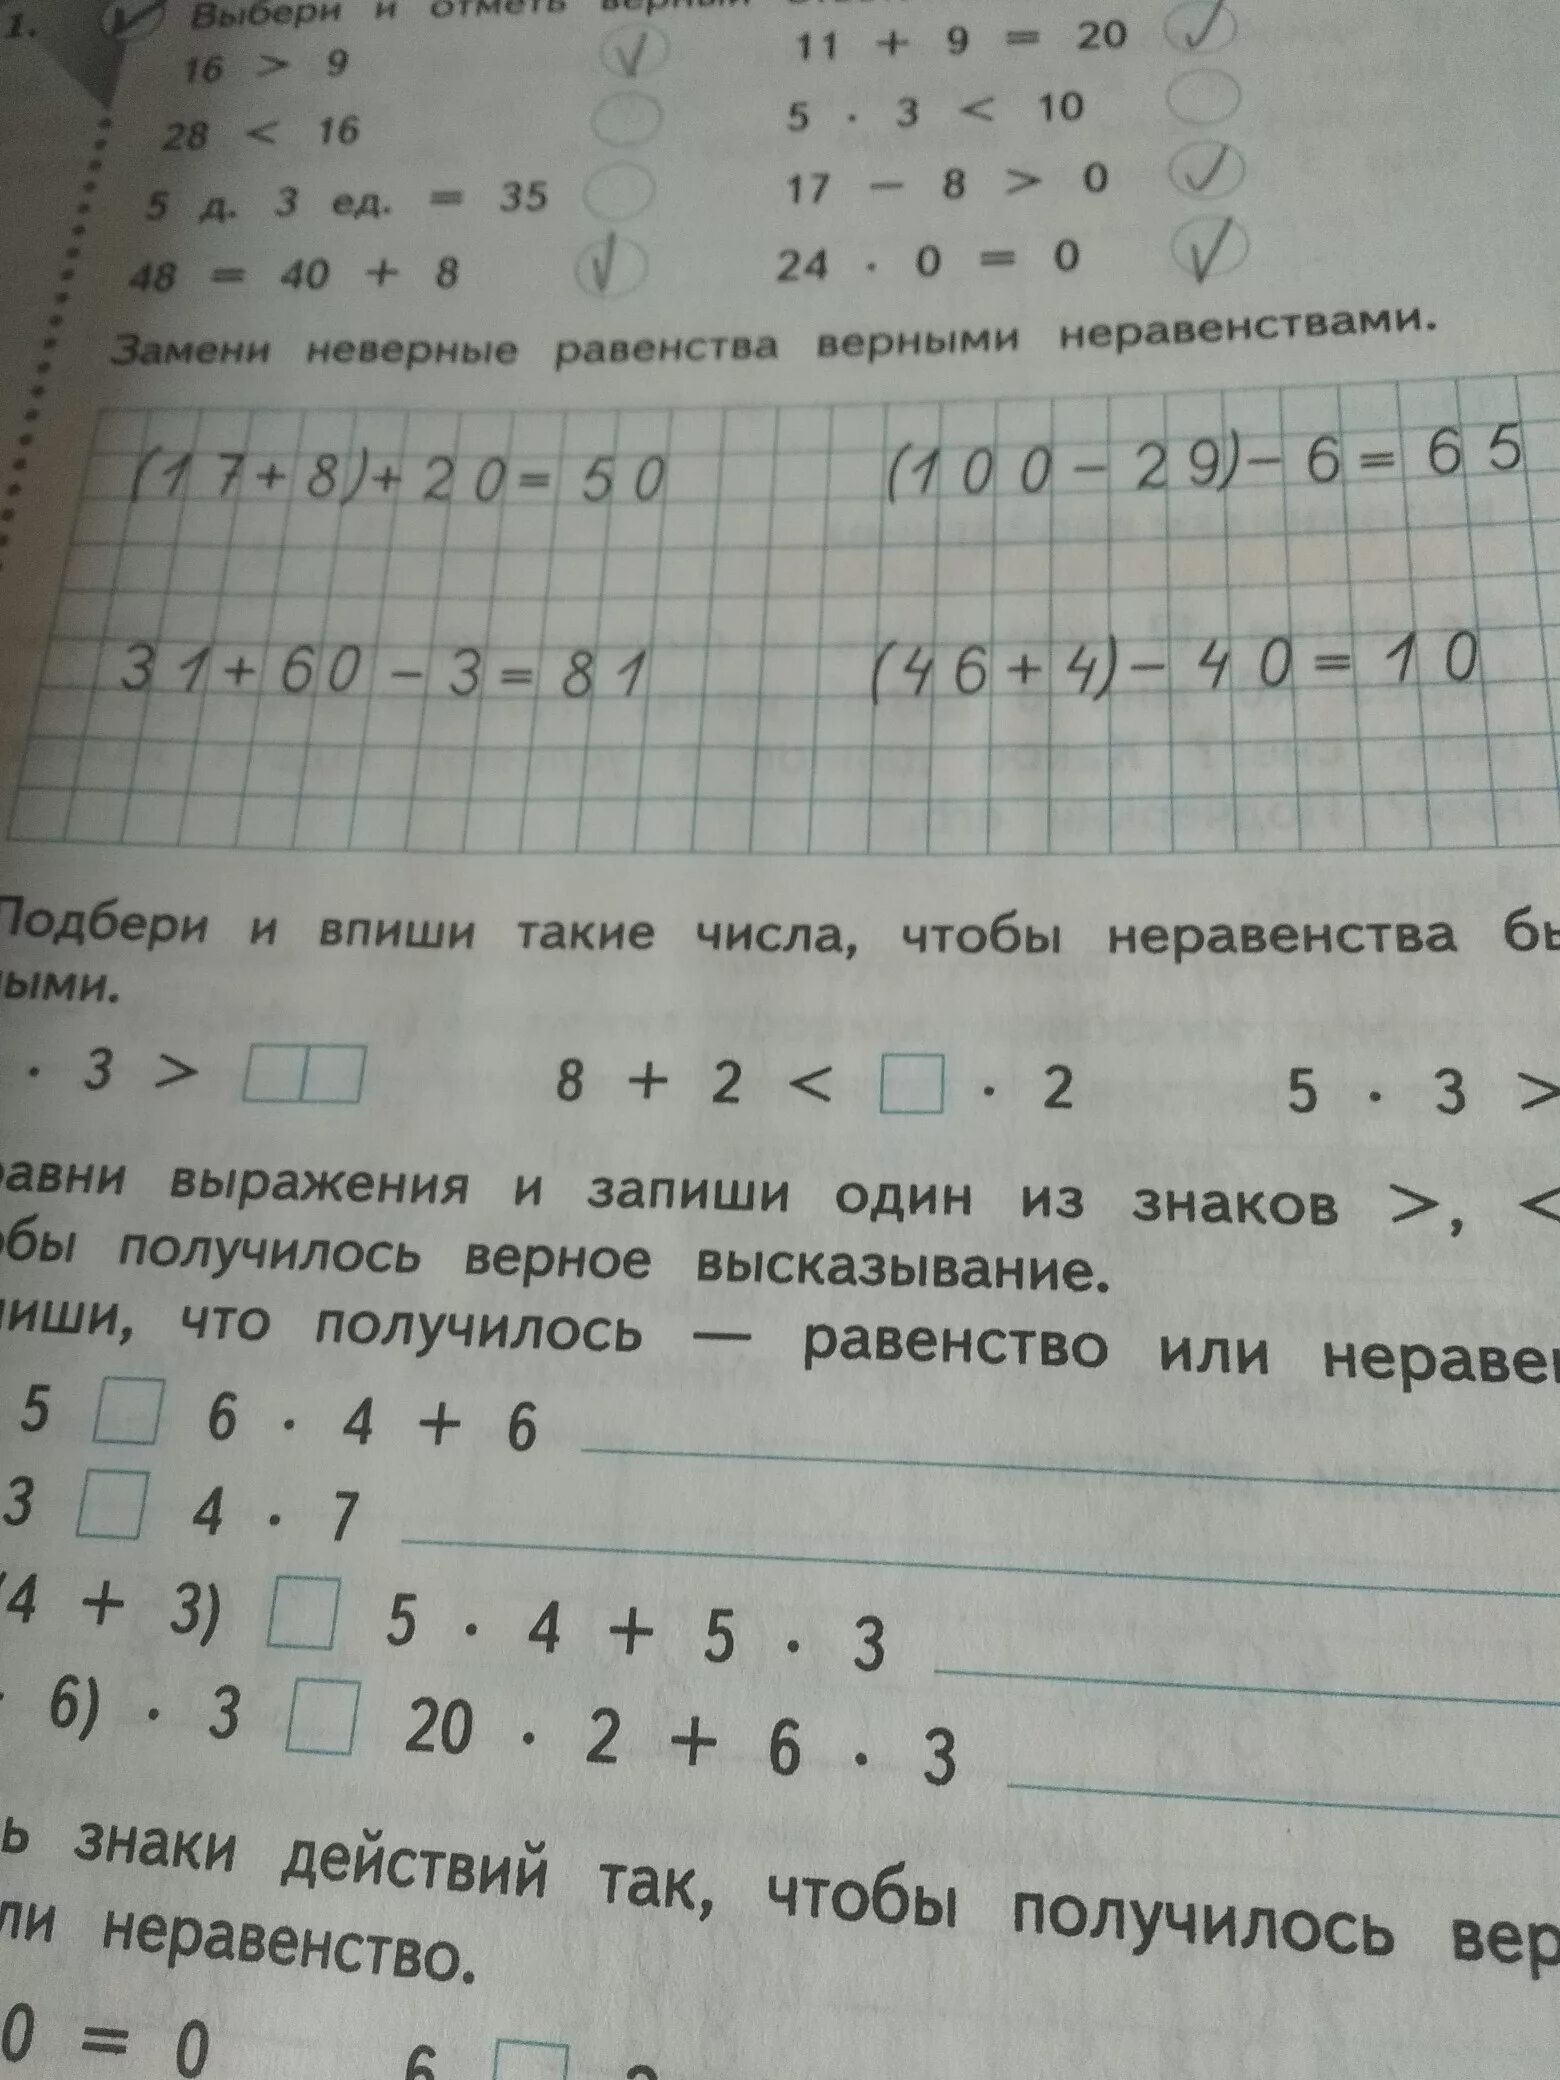 1. Выбери и отметь
16 > 9
11 + 9 = 20
28 < 16
5 · 3 < 10
5 д. 3 ед. = 35
17 − 8 > 0
48 = 40 + 8
24 · 0 = 0
Замени неверные равенства верными неравенствами.
(17+8)+20=50
(100−29)−6=65
31+60−3=81
(46+4)−40=10
Подбери и впиши такие числа, чтобы неравенства бы
ными.
· 3 >
8 + 2 < · 2
5 · 3 >
равни выражения и запиши один из знаков >, <
обы получилось верное высказывание.
пиши, что получилось — равенство или неравен
5 6 · 4 + 6
3 4 · 7
(4 + 3) 5 · 4 + 5 · 3
6) · 3 20 · 2 + 6 · 3
ь знаки действий так, чтобы получилось вер
ли неравенство.
0 = 0
6